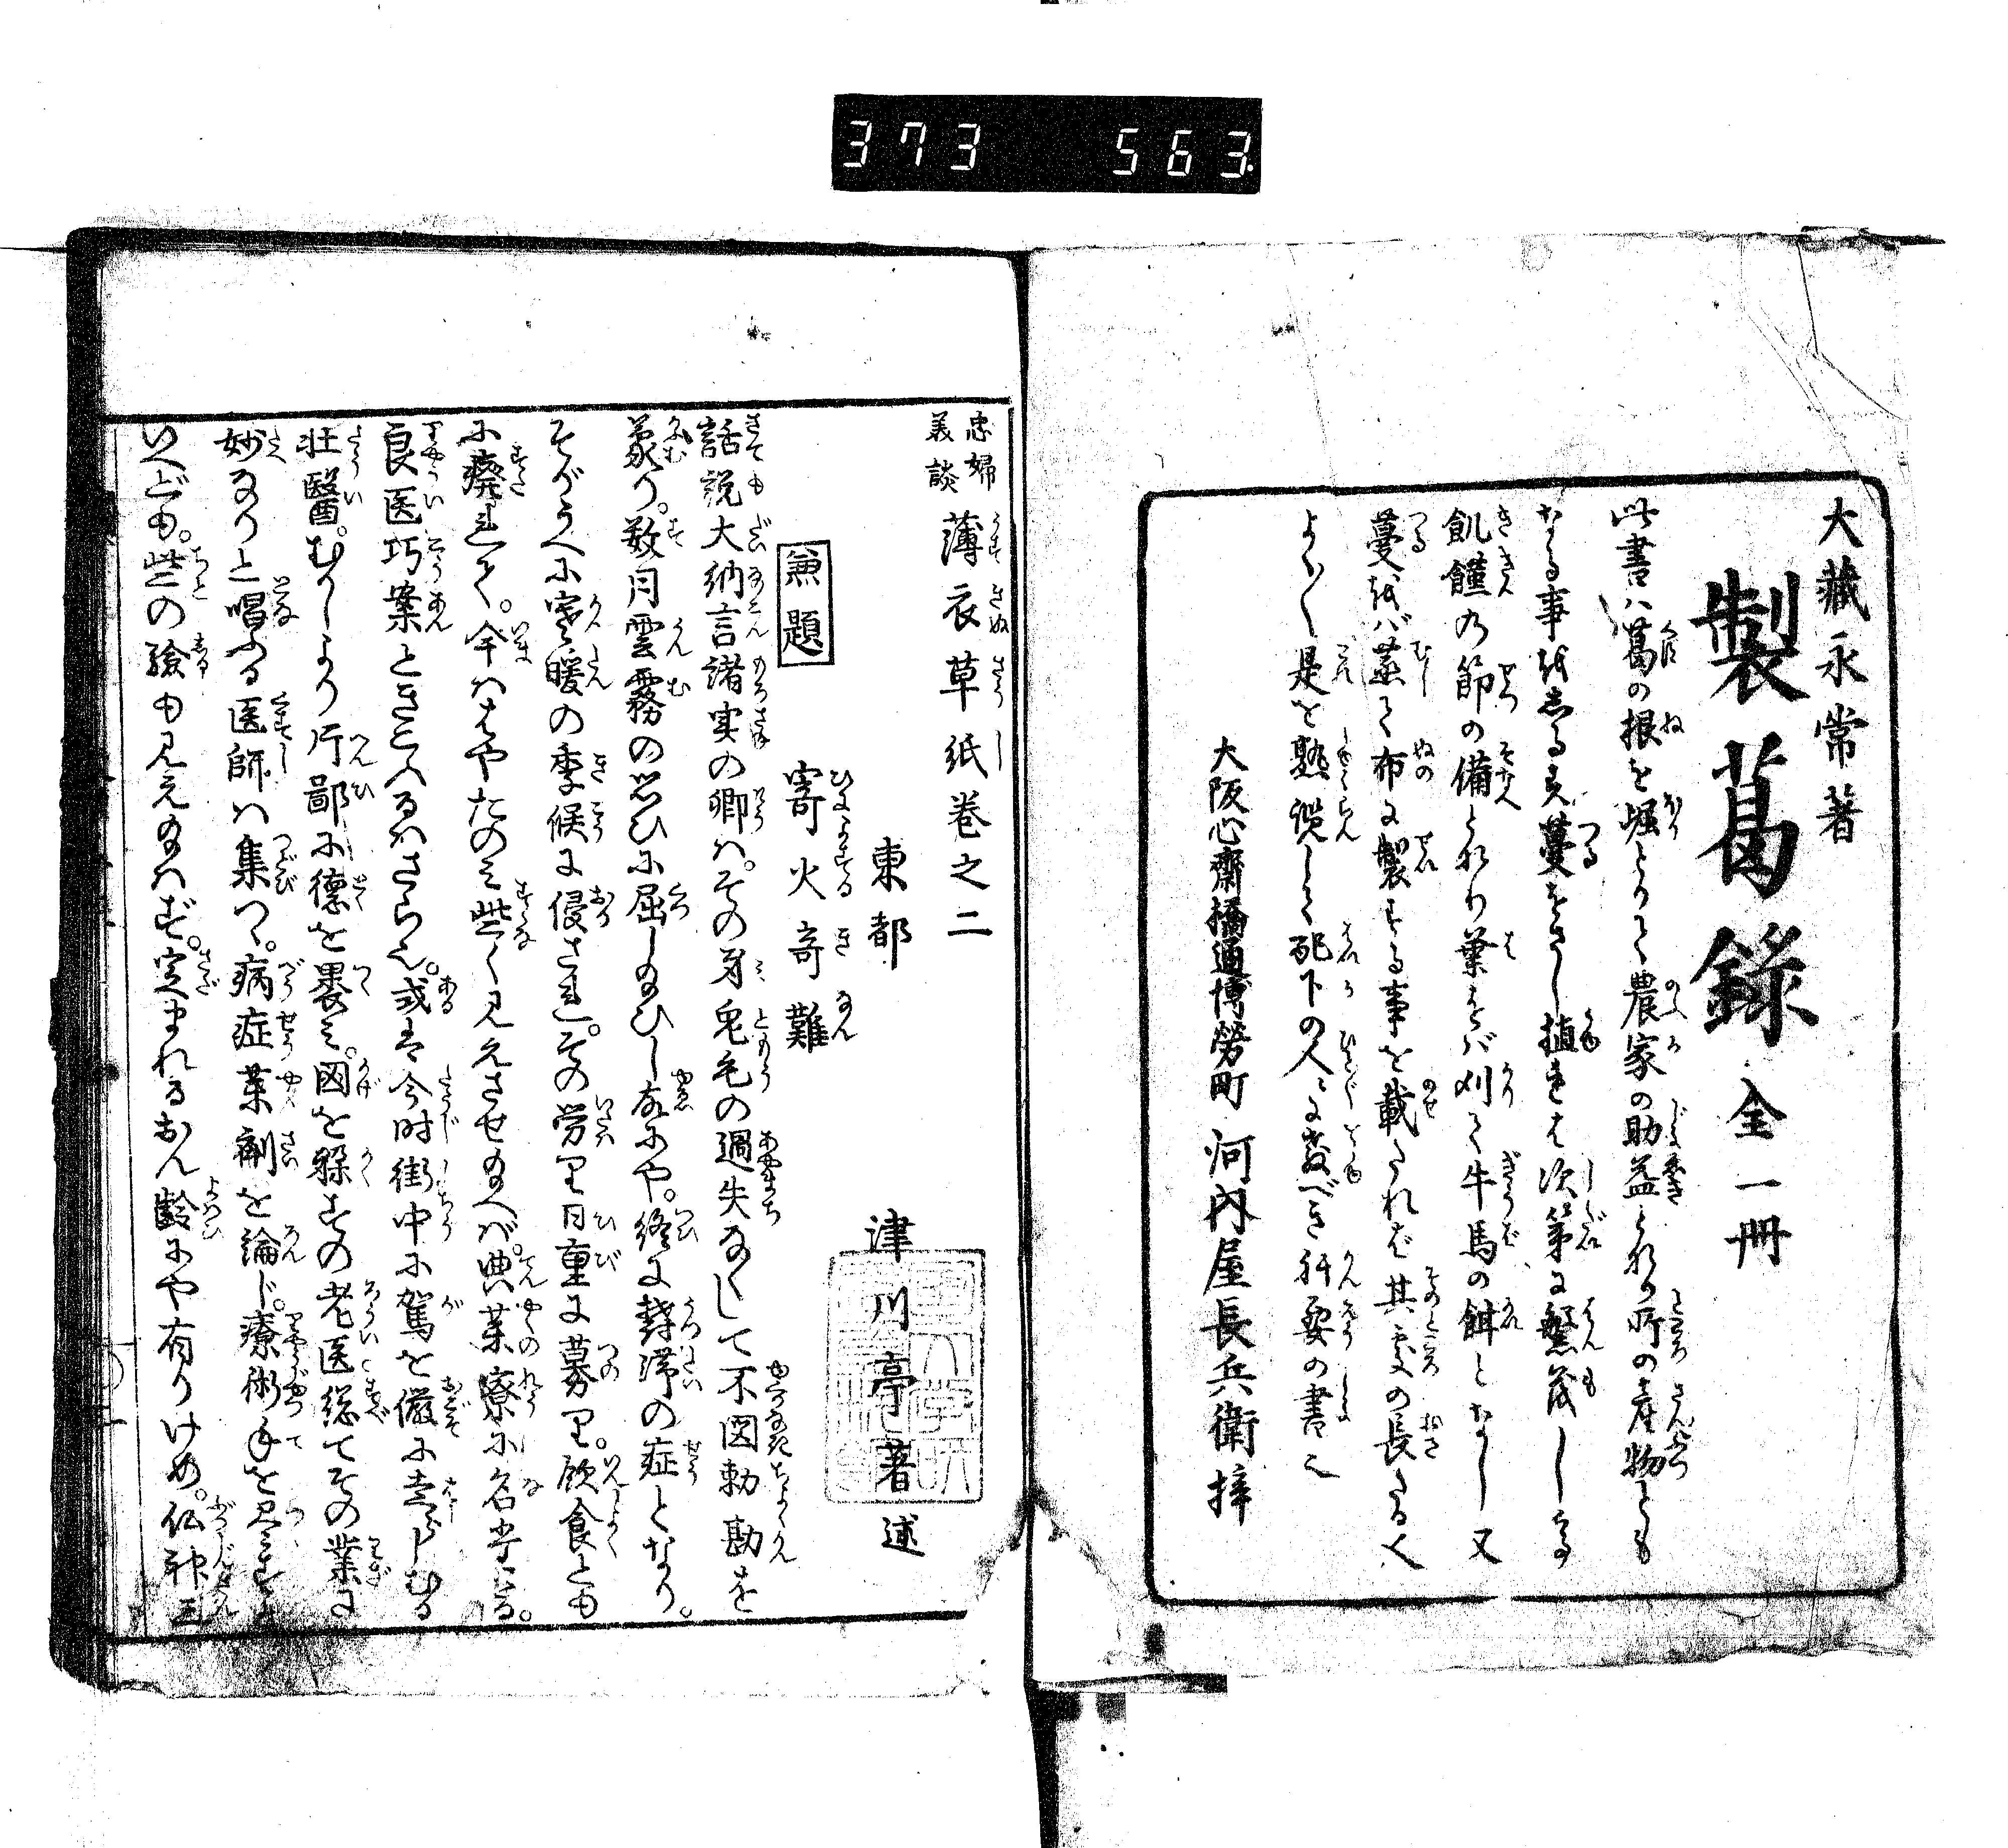 373 563
大藏永常著
製葛録 全一冊
此書ハ葛の根を堀とりて農家の助益となり所の産物とも
なる事をしるし又蔓をさし植ゑて次第に繁茂しする
飢饉の節の備となり葉をバ刈て牛馬の餌となし又
蔓をバ蒸て布に製する事を載たれば其処の長たる人
よく〱是を熟覧して配下の人に教べき肝要の書也
大阪心齋橋通博労町 河内屋長兵衛梓
忠婦義談 薄衣草紙巻之二
東都 津川亭著述
兼題 寄火奇難
話説大納言諸実の卿ハ。その身兎毛の過失なくして不図勅勘を
蒙り。数月雲霧の思ひに屈し給ひし故にや。終に欝滞の症となり。
そがうへに寒暖の季候に侵され。その労里日重に募里。飲食とも
に廃れて。今ハはやたのみ些く見えさせ給へバ。典薬寮に名当る。
良医巧案ときこへるハさら也。或は今时街中に駕を儼に走らしむる
壮醫。むかしより片鄙に徳を褁み。図を躲すの老医総てその業に
妙なりと唱ふる医師ハ集つゝ。病症薬剤を論じ。療術手を尽すと
いへども。些の験も見え給ハず。定まれるおん齢にや有りけめ。仏神三